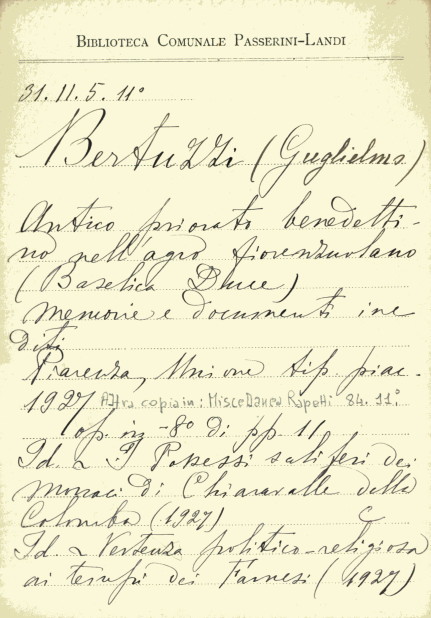 BIBLIOTECA COMUNALE PASSERINI-LANDI
31. II. 5. 11º
Bertuzzi (Guglielmo)
Antico priorato benedetti-
no nell'agro fiorenzuolano
(Baselica Duce)
Memorie e documenti ine
diti
Piacenza, Unione tip. piac.
1927 Altra copia in: Miscellanea Rapetti 84. 11.º
op. in -8º di pp. 11
Id. - I Possessi saliferi dei
monaci di Chiaravalle della
Colomba (1927)
Id. - Vertenza politico-religiosa
ai tempi dei Farnesi (1927)